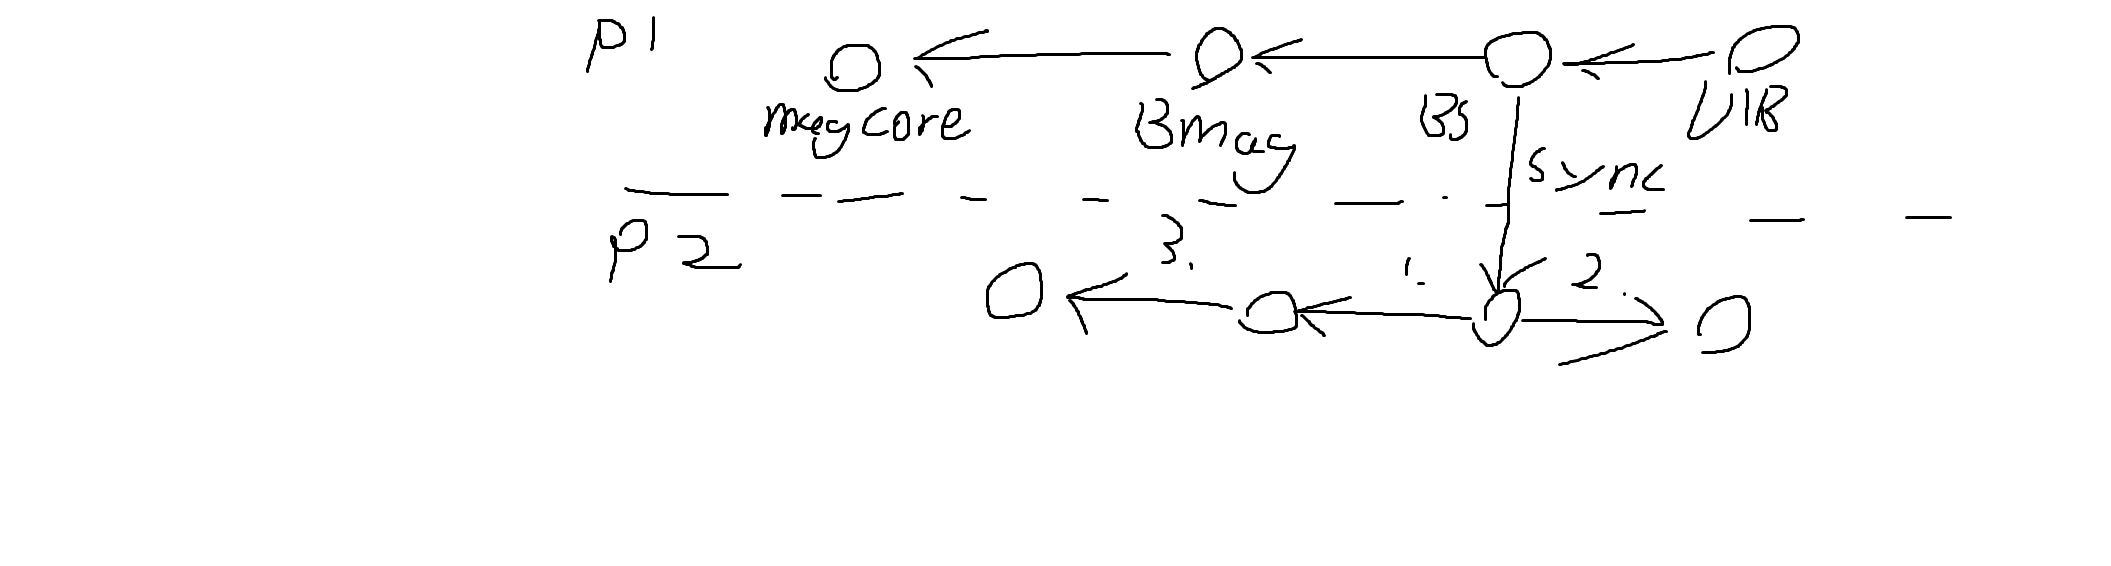 P1
magcore Bmag BS VIB
sync
P2
3. 1. 2.